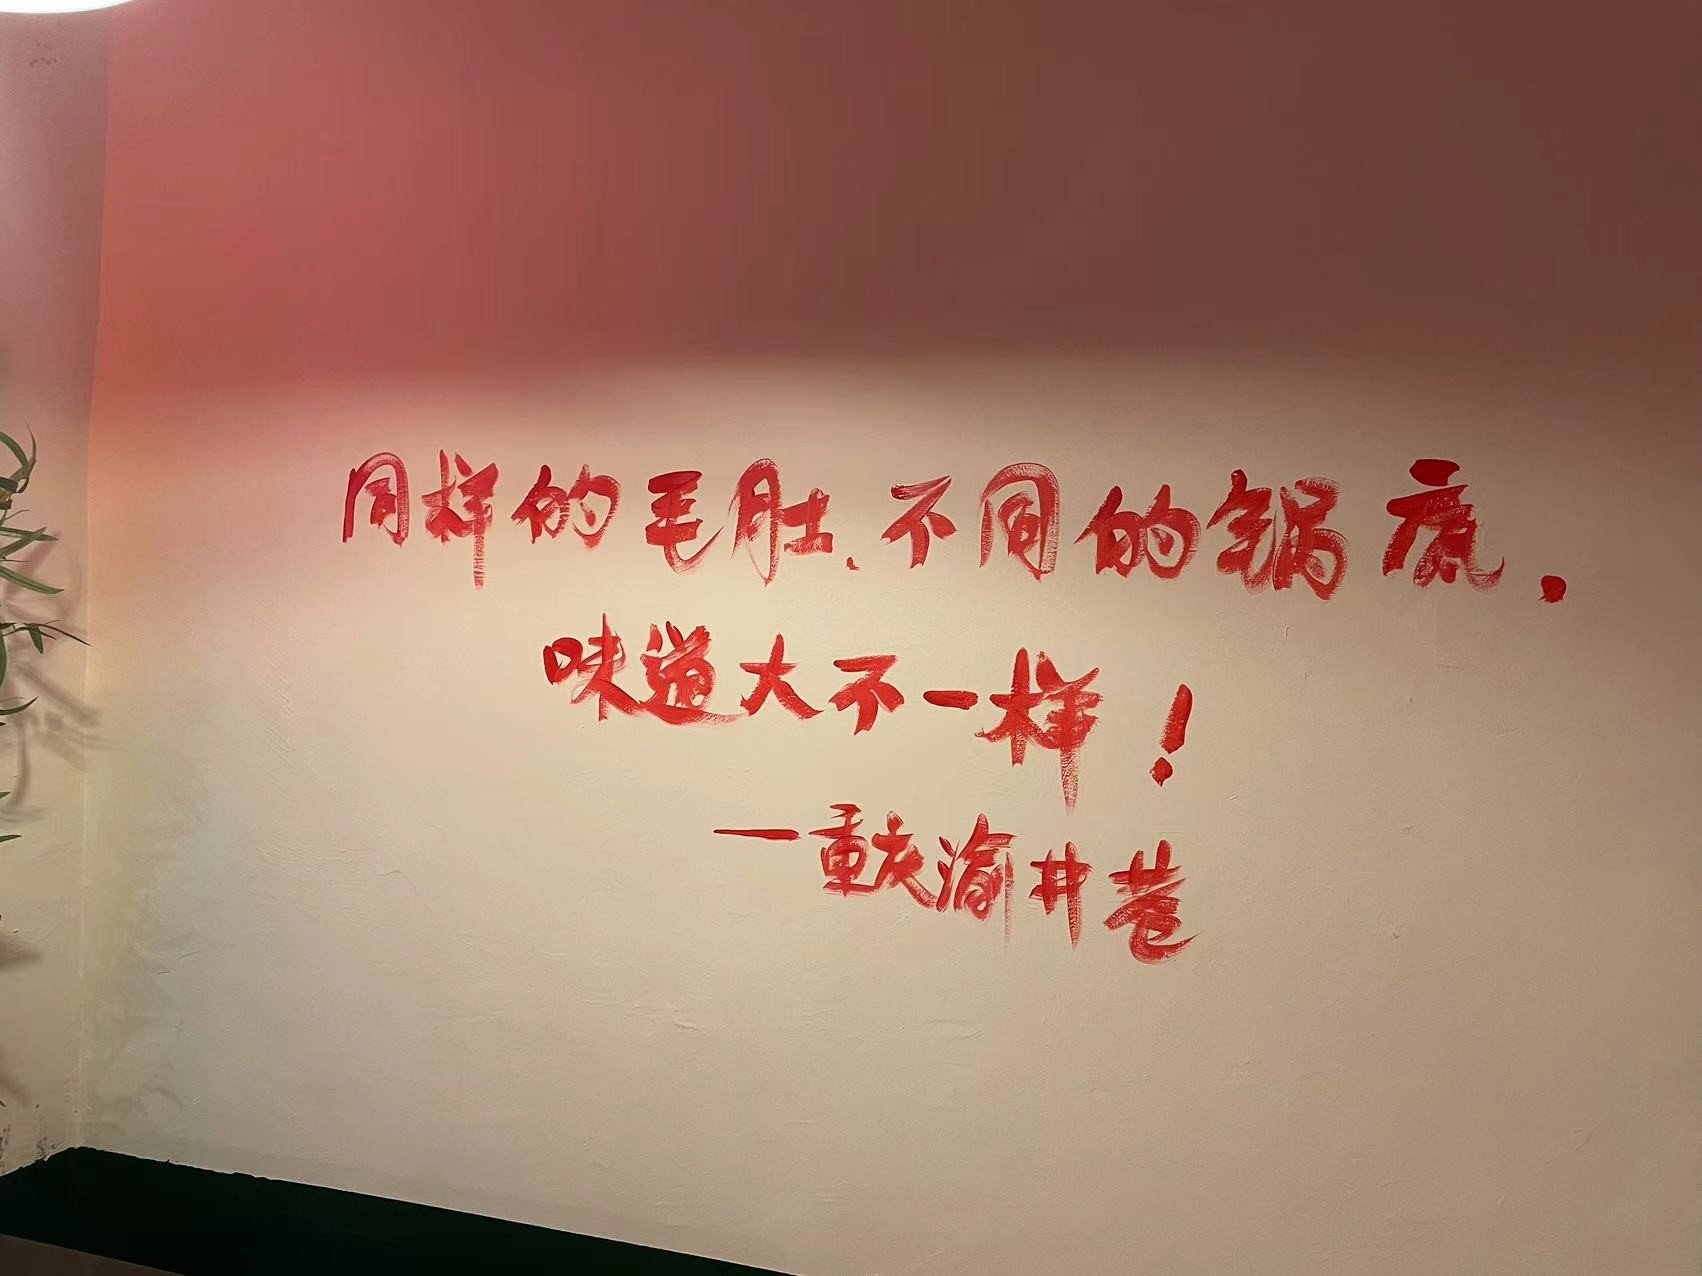 同样的毛肚、不同的锅底，
味道大不一样！
一重庆渝井巷